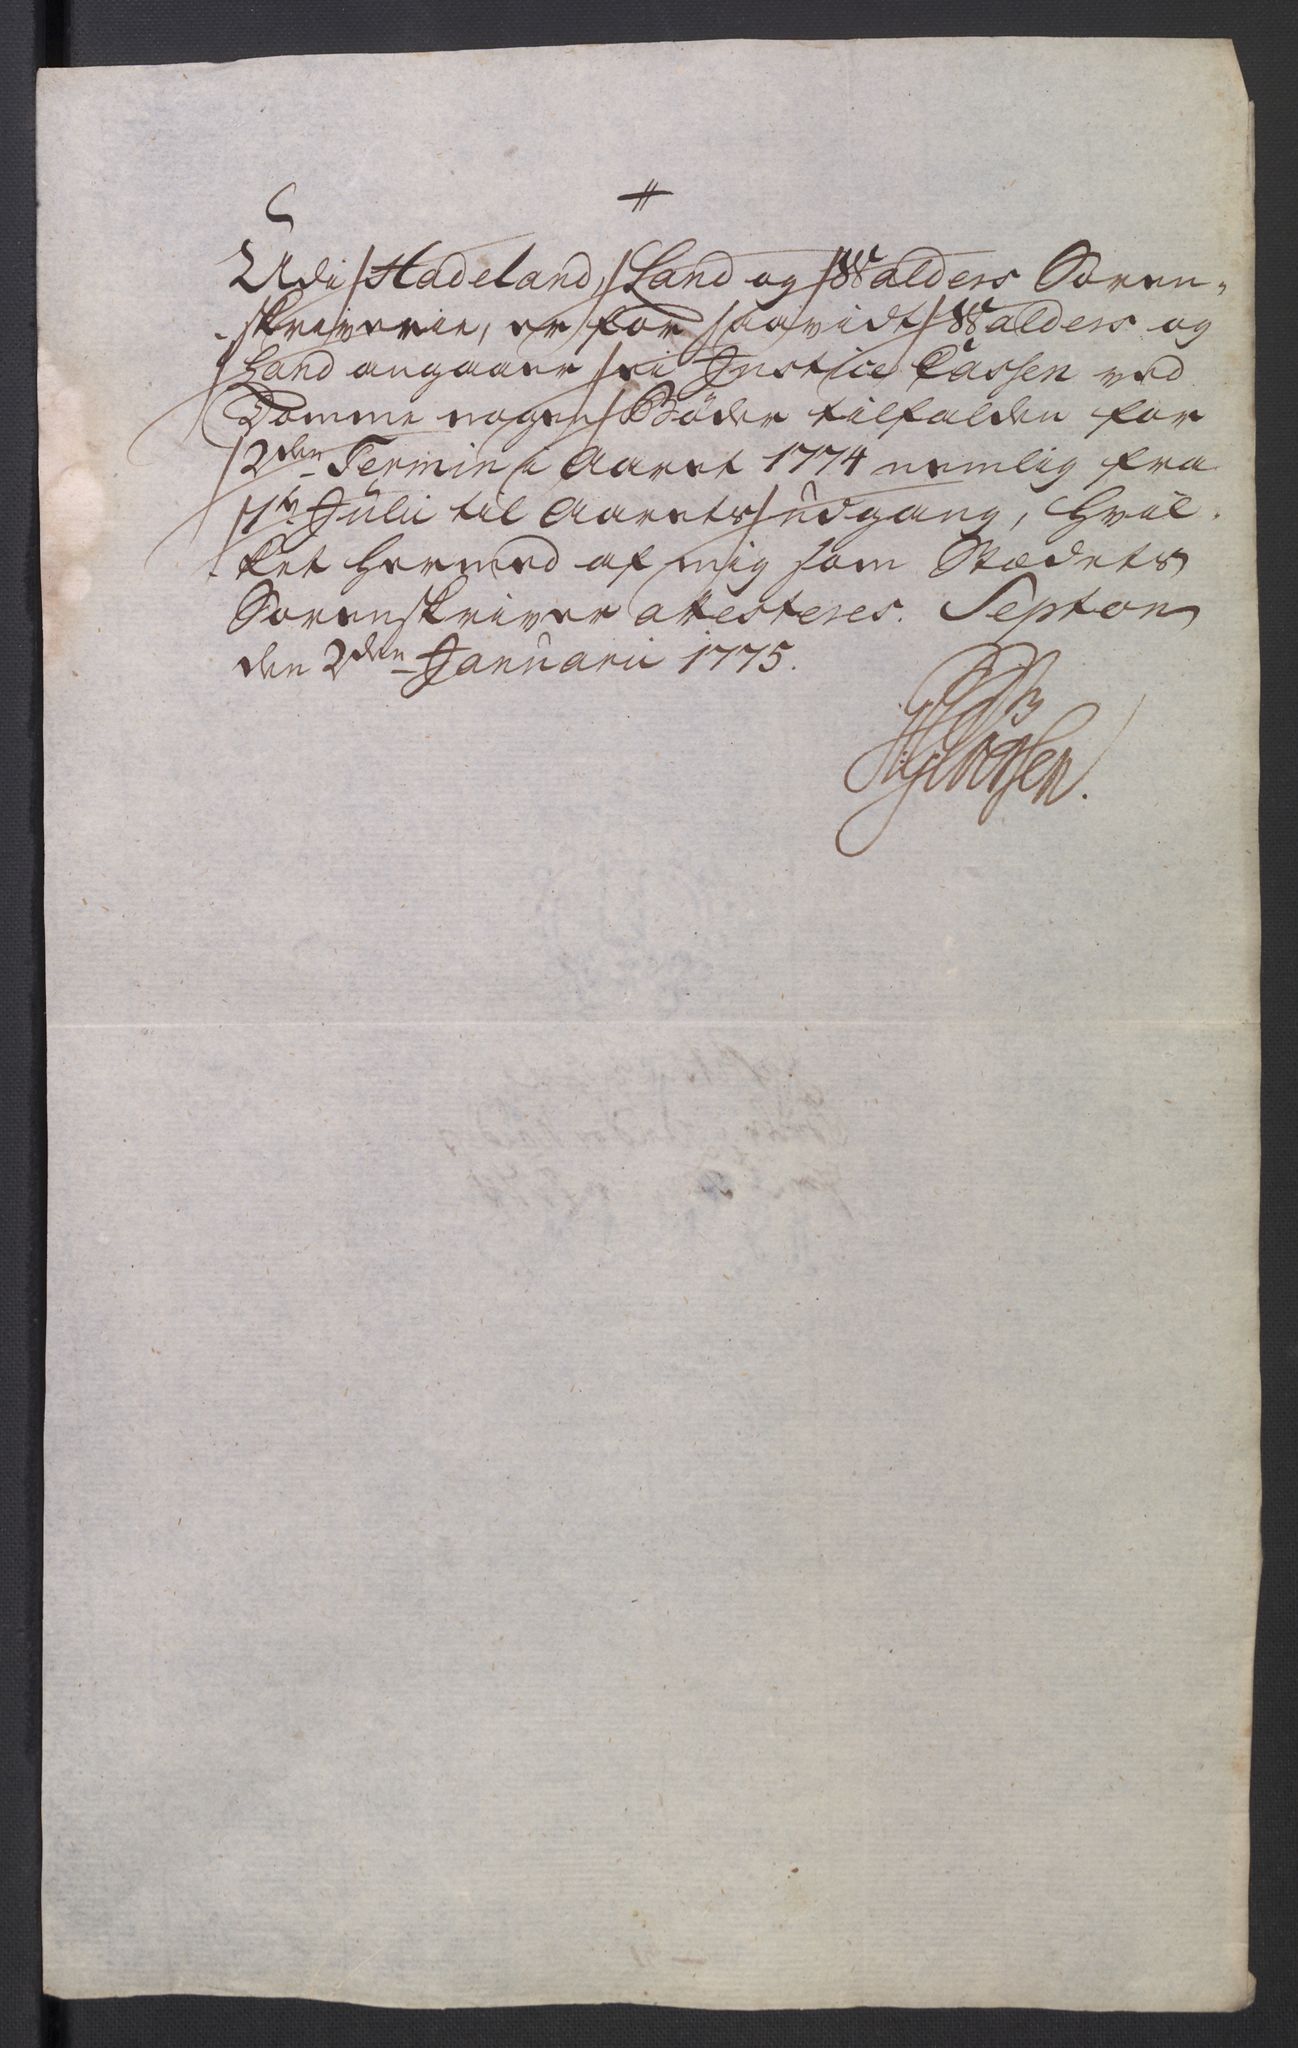 Udi Hadeland, Land og Walders Soren-
skriverie, er for saavidt Walders og
Land angaaer ei Justice Cassen ved
Domme nogen Böder tilfalden for
2den Termin i Aaret 1774 nemlig fra
1te Julii til Aarets udgang, hvil-
ket hermed af mig som Stædets
Sorenskriver attesteres. Septon
den 2den Januarii 1775.